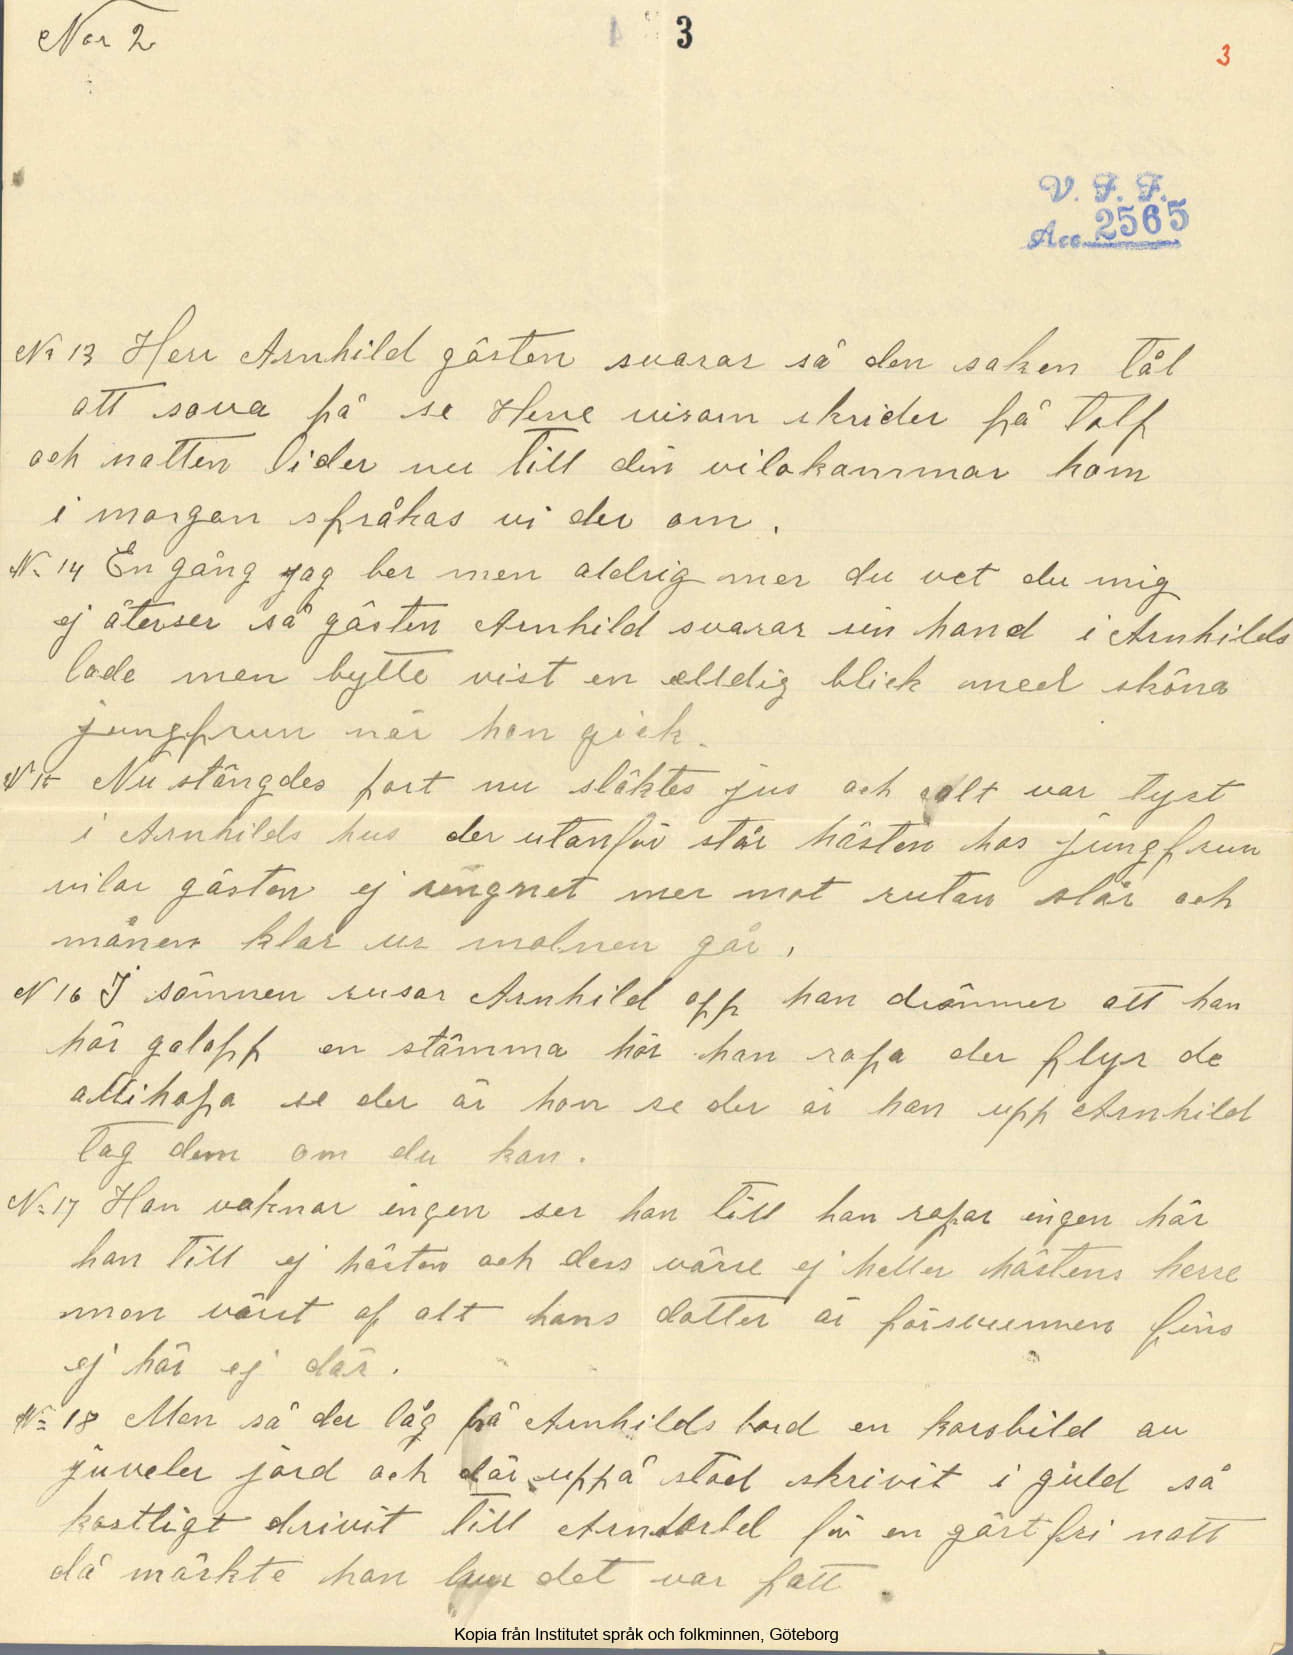 Nor 2
3
3
V. F. F.
Acc. 2565
No 13 Herr Arnhild gästen svarar så den saken tål
att sova på se Herre visarn skrider på tolf
och natten lider nu till din vilokammar kom
i morgon språkas vi der om.
No 14 En gång jag ber men aldrig mer du vet du mig
ej återser så gästen Arnhild svarar sin hand i Arnhilds
lade men bytte vist en elldig blick med sköna
jungfrun när hon gick.
N 15 Nu stängdes port nu släktes jus och alt var tyst
i Arnhilds hus der utanför står hästen hos jungfrun
vilar gästen ej rengnet mer mot rutan slår och
månen klar ur molnen går,
N 16 I sömnen rusar Arnhild opp han drömmer att han
hör galopp en stämma hör han ropa der flyr de
allihopa se der är hon se der är han upp Arnhild
tag dem om du kan.
No 17 Han vaknar ingen ser han till han ropar ingen hör
han till ej hästen och dess värre ej heller hästens herre
mon värst af alt hans dotter är försvunnen fins
ej här ej där.
No 18 Men så der låg på Arnhilds bord en korsbild av
juveler jord och där uppå stod skrivit i guld så
kostligt drivit till Arnhild för en gästfri natt
då märkte han hur det var fatt.
Kopia från Institutet språk och folkminnen, Göteborg